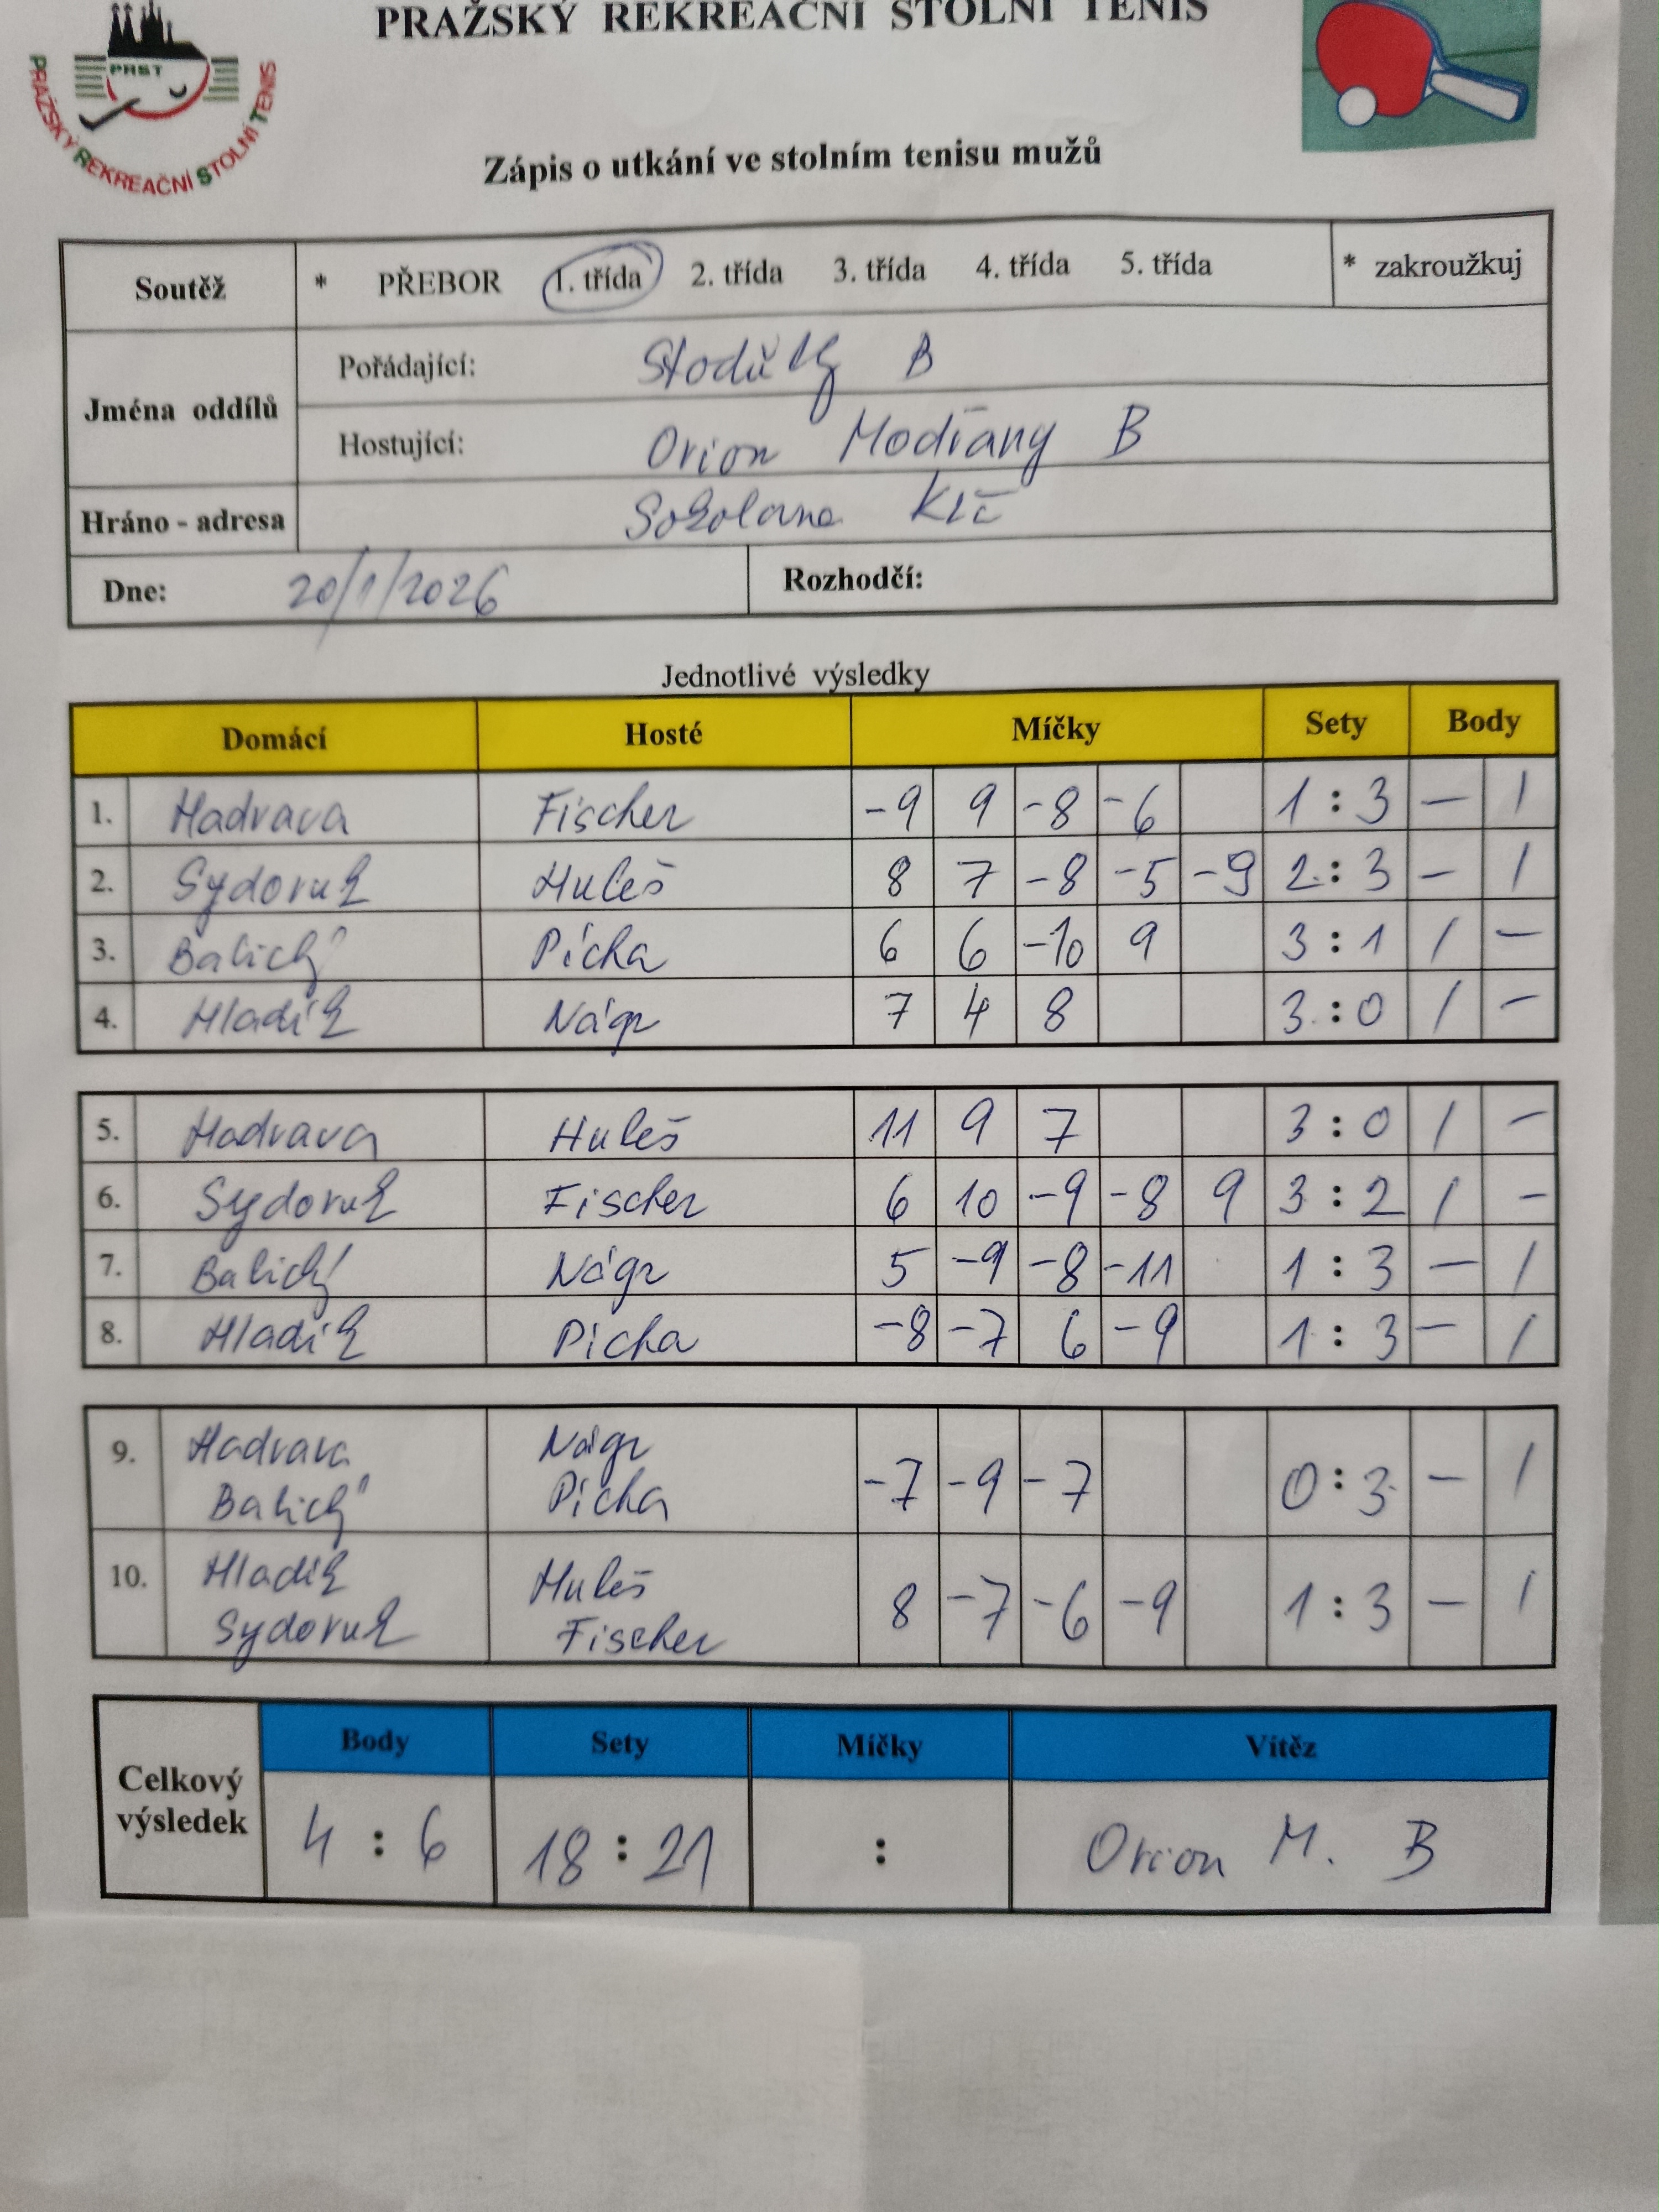 PRAŽSKÝ REKREAČNÍ STOLNÍ TENIS
PRST
PRAŽSKÝ REKREAČNÍ STOLNÍ TENIS
Zápis o utkání ve stolním tenisu mužů
Soutěž * PŘEBOR 1. třída 2. třída 3. třída 4. třída 5. třída * zakroužkuj
Jména oddílů
Pořádající: Stodůlky B
Hostující: Orion Modřany B
Hráno - adresa Sokolovna Krč
Dne: 20/1/2026 Rozhodčí:
Jednotlivé výsledky
Domácí Hosté Míčky Sety Body
1. Hadrava Fischer -9 9 -8 -6 1 : 3 – 1
2. Sydoruk Huleš 8 7 -8 -5 -9 2 : 3 – 1
3. Balický Pícha 6 6 -10 9 3 : 1 1 –
4. Hladík Nágr 7 4 8 3 : 0 1 –
5. Hadrava Huleš 11 9 7 3 : 0 1 –
6. Sydoruk Fischer 6 10 -9 -8 9 3 : 2 1 –
7. Balický Nágr 5 -9 -8 -11 1 : 3 – 1
8. Hladík Pícha -8 -7 6 -9 1 : 3 – 1
9. Hadrava Nágr
Balický Pícha -7 -9 -7 0 : 3 – 1
10. Hladík Huleš
Sydoruk Fischer 8 -7 -6 -9 1 : 3 – 1
Celkový výsledek
Body Sety Míčky Vítěz
4 : 6 18 : 21 : Orion M. B